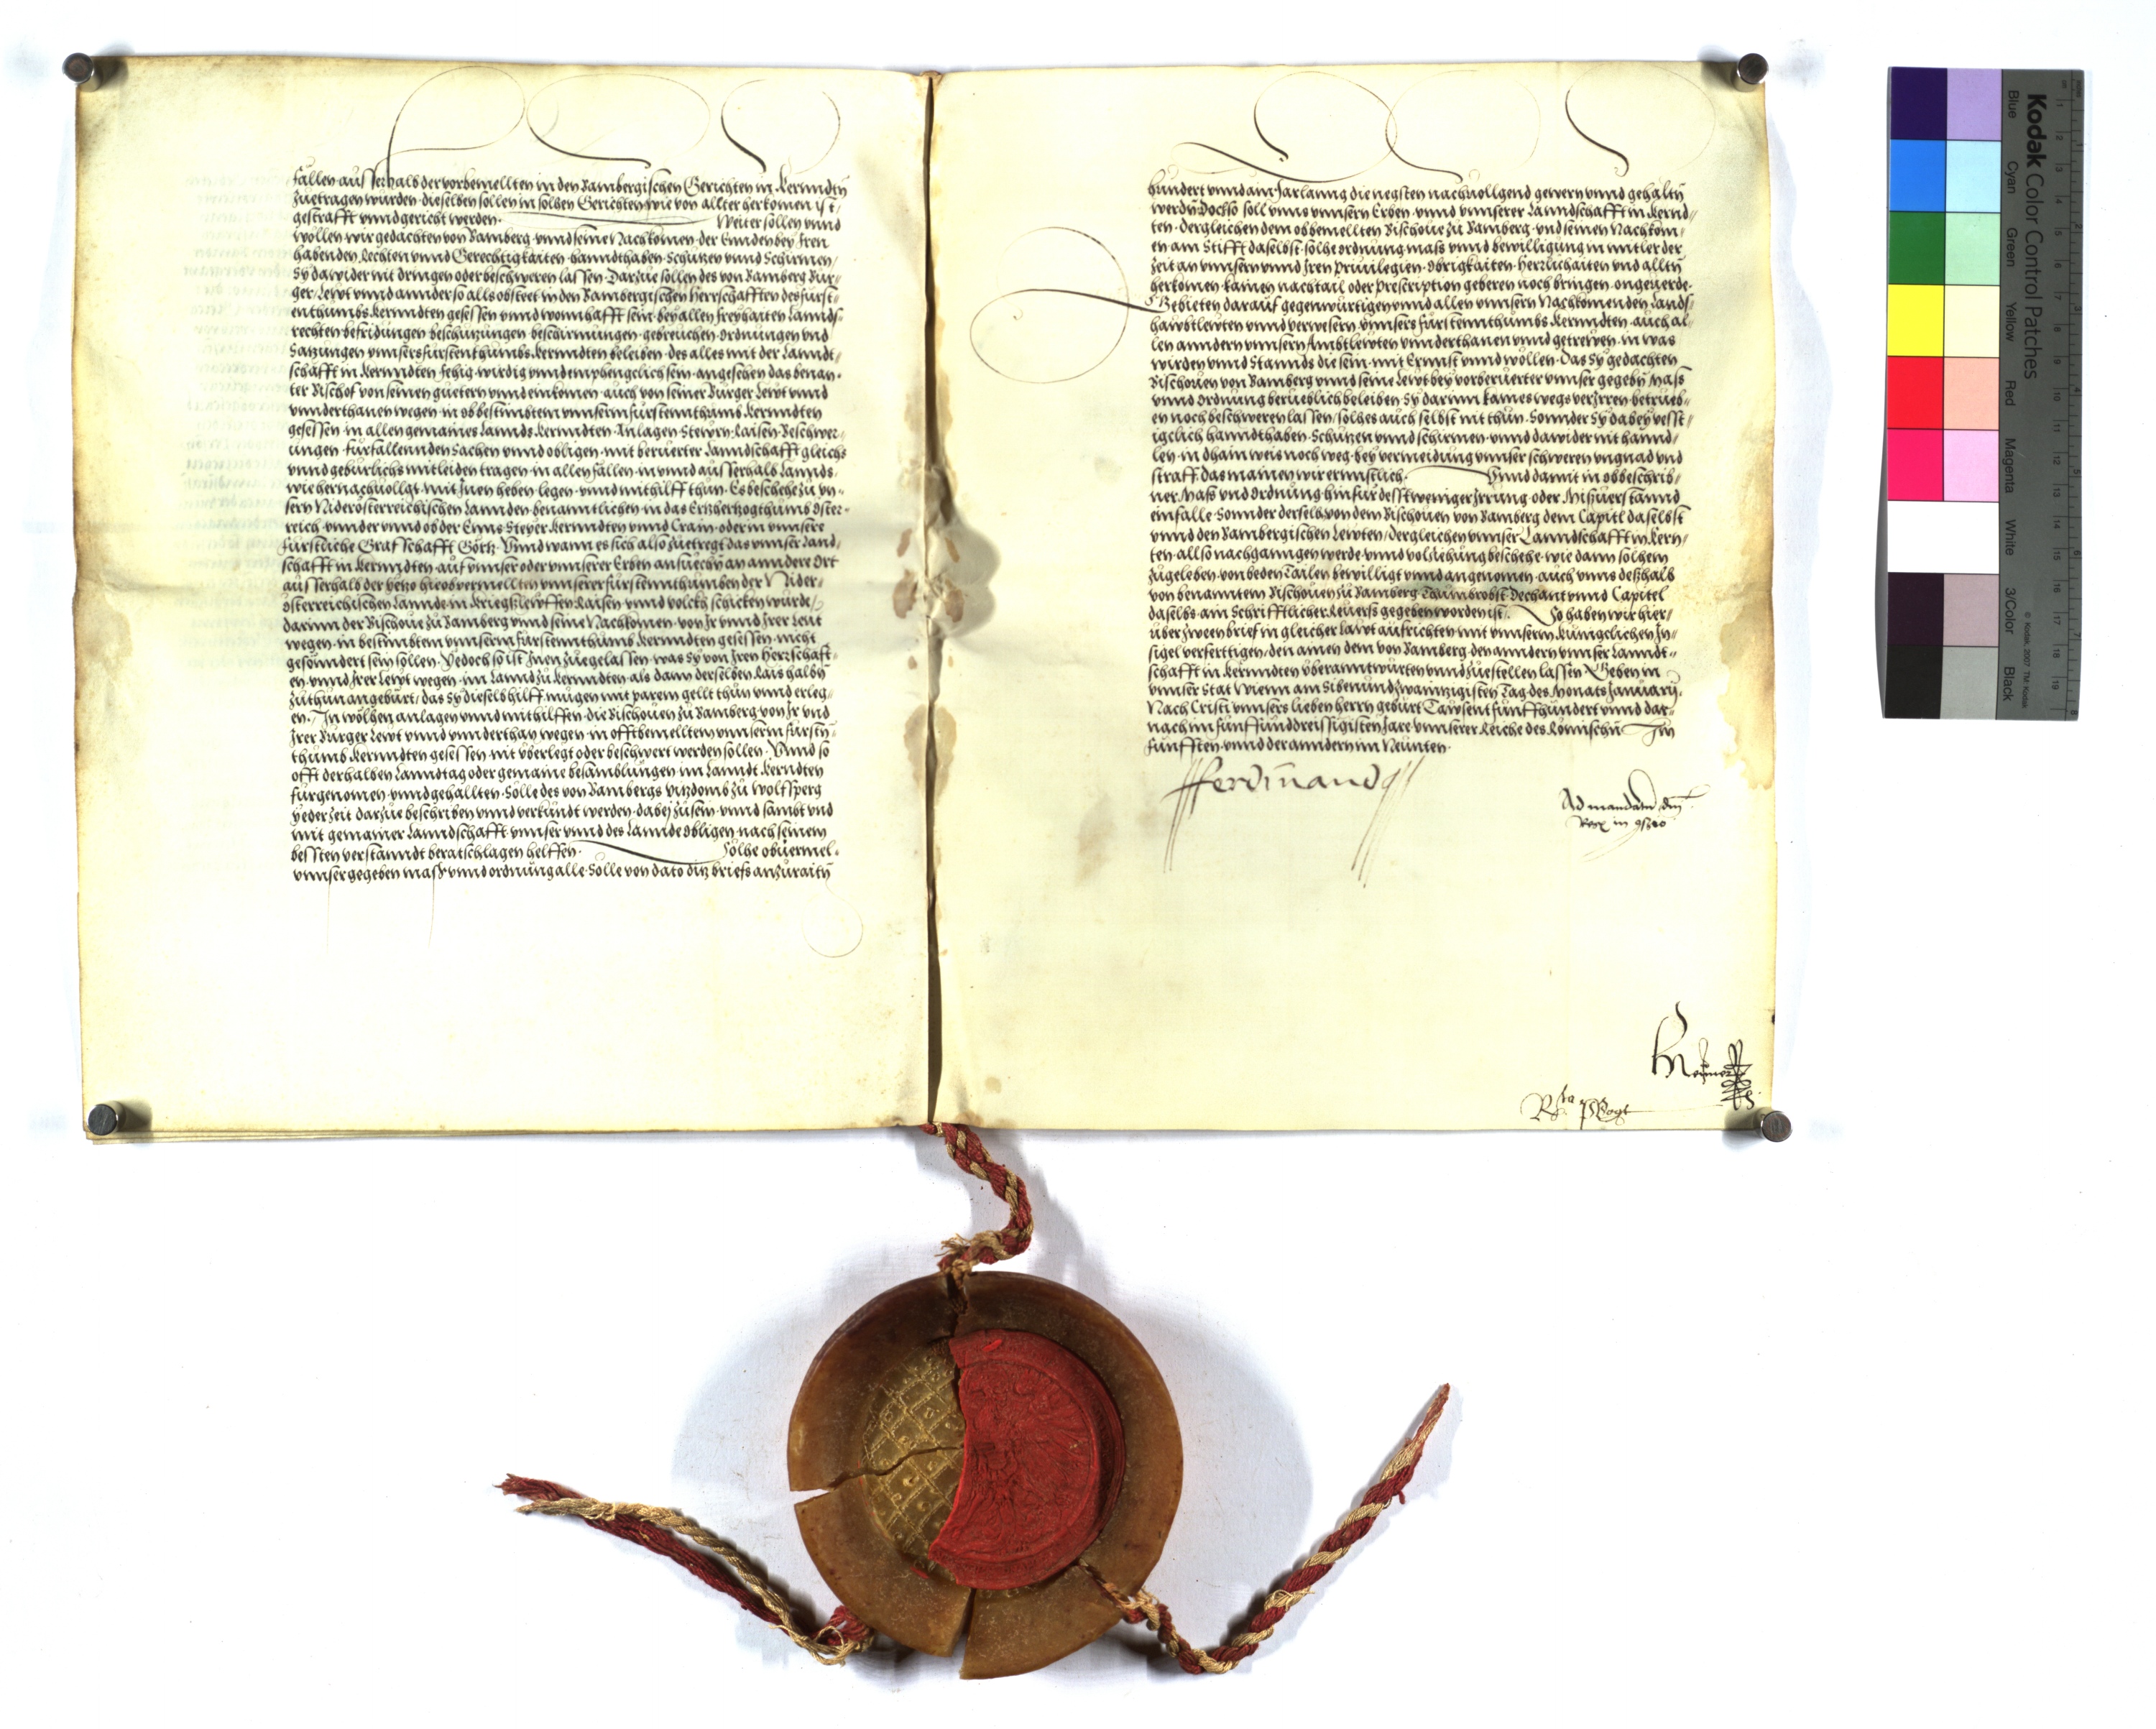 fällen ausserhalb der vorbemellten in den Bambergischen Gerichten in Kernndtn̄
zuetragen wurden. dieselben sollen in solhen Gerichten, wie von allter herkomen ist,
gestrafft vnnd gericht werden. Weiter sollen vnnd
wöllen wir gedachten von Bamberg vnnd seine Nachkomen. der Ennden bey Iren
habenden Rechten vnnd Gerechtigkaiten hanndthaben. Schützen vnnd Schirmen,
Sy dawider nit dringen oder beschweren lassen. Darzue sollen des von Bamberg Bur-
ger, Lewt vnnd annder so alls obsteet in den Bambergischen Herrschafften des fürst-
enthumbs Kernndten gesessen vnnd wonnhafft sein. bey allen freyhaiten Lannds-
rechten befridungen beschützungen beschirmungen. gebreuchen. Ordnungen vnd
Satzungen vnnsers fürstenthumbs Kernndten beleiben. des alles mit der Lanndt-
schafft in Kernndten fehig. wirdig vnnd emphengclich sein. angesehen das benan-
ter Bischof von seinen guetern vnnd einkomen. auch von seiner Burger Lewt vnnd
vnnderthanen wegen. in obbestimbtem vnnserm fürstennthumb Kernndten
gesessen in allen gemaines Lannds Kernndten. Anlagen. Stewrn. Raisen. Beschwer-
ungen. fürfallennden Sachen vnnd obligen. mit berüerter Lanndschafft gleichs
vnnd gebürlichs mitleiden tragen. in allen fällen. in vnnd ausserhalb Lannds.
wie hernachuollgt. mit Inen heben. legen. vnnd mithilff thun. Es beschehe zu vn-
sern Niderösterreichischen Lannden. benanntlichen in das Ertzhertzogthumb Öster-
reich. vnnder vnnd ob der Enns. Steyer. Kernndten vnnd Crain. oder in vnnsere
fürstliche Grafschafft Görtz. Vnnd wann es sich also zuetregt das vnnser Land-
schafft in Kernndten. auf vnnser oder vnnserer Erben ansuechn̄ an anndere Ort
ausserhalb der yetzo hieobvermellten vnnserer fürstennthumben der Nider-
österreichischen Lannde. in Kriegßlewffen. Raisen. vnnd volckh schicken würde,
darinn der Bischoue zu Bamberg vnnd seine Nachkomen. von Ir vnnd Irer Leut
wegen. in bestimbtem vnnserm fürstennthumb Kernndten gesessen. nicht
gesonndert sein sollen. Yedoch so ist Inen zuegelassen. was sy von Iren Herrschafft-
en. vnnd Irer Lewt wegen. im Lannd zu Kernndten. als dann derselben Rais halbn̄
zuthun angebürt, das sy dieselb hilff. mügen mit parem gellt thun vnnd erleg-
en. In wölhen anlagen vnnd mithilffen. die Bischouen zu Bamberg. von Ir vnd
Irer Burger Lewt vnnd vnnderthan wegen. in offtbemelltem vnnserm fürstn̄-
thumb Kernndten gesessen. nit vberlegt oder beschwert werden sollen. Vnnd so
offt derhalben Lanndtag oder gemaine besamblungen im Lanndt Kerndten
fürgenomen. vnnd gehallten. Solle des von Bambergs Vitzdomb zu Wolffsperg
yeder zeit darzue beschriben vnnd verkündt werden. dabej zusein. vnnd sambt vnd
mit gemainer Lanndschafft. vnnser vnnd des Lannds Obligen. nach seinem
bessten verstanndt beratschlagen helffen. Solhe obuermel.
vnnser gegeben mass vnnd ordnung alle. Solle von dato ditz briefs anzuraitn̄
hundert vnnd ain Jar lanng die negsten nachuollgend gewern vnnd gehaltn̄
werdn̄. Doch so soll vnns vnnsern Erben. vnnd vnnserer Lanndschafft in Kernd-
ten. dergleichen dem obbemellten Bischoue zu Bamberg. vnd seinen Nachkom-
en am Stifft daselbst. solhe ordnung mass vnnd bewilligung in mitler der
zeit an vnnsern vnnd Iren Priuilegien. Obrigkaiten. Herrlichaiten vnd alltn̄
herkomen. kainen nachtail oder Prescription geberen noch bringen. ongeuerde.
Gebieten darauf gegenwürtigen vnnd allen vnnsern Nachkomenden Lands-
haubtlewten vnnd verwesern. vnnsers fürstennthumbs Kernndten. auch al-
len anndern vnnsern Ambtlewten vnnderthanen vnnd getrewen. in was
wirden vnnd Stannds die sein. mit Ernnst vnnd wöllen. Das sy gedachten
Bischouen von Bamberg vnnd seine Lewt bey vorberuerter vnnser gegebn̄ Mass
vnnd Ordnung berueblich beleiben. Sy darinn kaines wegs verirren. betrueb-
en noch beschweren lassen, solhes auch selbst nit thun. Sonnder Sy dabey vesst-
igclich hanndthaben. Schutzen vnnd schirmen. vnnd dawider nit hannd-
len. in dhain weis noch weg. bey vermeidung vnnser schweren vngnad vnd
straff. das mainen wir ernnstlich. Vnnd damit in obbeschrib-
ner. Mass vnd Ordnung. hinfur desst weniger Irrung. oder. Misuerstannd
einfalle. Sonnder derselb. von dem Bischouen von Bamberg. dem Capitl daselbst
vnnd den Bambergischen Lewten, dergleichen vnnser Lanndschafft in Kern-
ten. allso nachganngen werde. vnnd volziehung beschehe. wie dann solhem
zugeleben. von beden Tailen bewilligt vnnd angenomen. auch vnns deßhalb
von benanntem Bischouen zu Bamberg. Thumbrobst. Dechant vnnd Capitel
daselbs. ain Schrifftlicher. Reuerss gegeben worden ist. So haben wir hier-
über zween brief in gleicher Lawt aufrichten. mit vnnserm kunigclichen In-
sigel verferttigen, den ainen dem von Bamberg. den anndern vnnser Lanndt-
schafft in Kernndten vberanntwurten vnnd zuestellen lassen. Geben in
vnnser Stat Wienn am Sibenundzwaintzigisten Tag des Monats January.
Nach Cristi vnnsers lieben herrn geburt Tawsent fünffhundert vnnd dar-
nach im fünffunddreissigisten Jare. vnnserer. Reiche des Römischn̄ Im
fünfften. vnnd der anndern im Neunten.
Ferdinand
Ad mandatū dn̄i
Regꝭ in
Rta Vogt